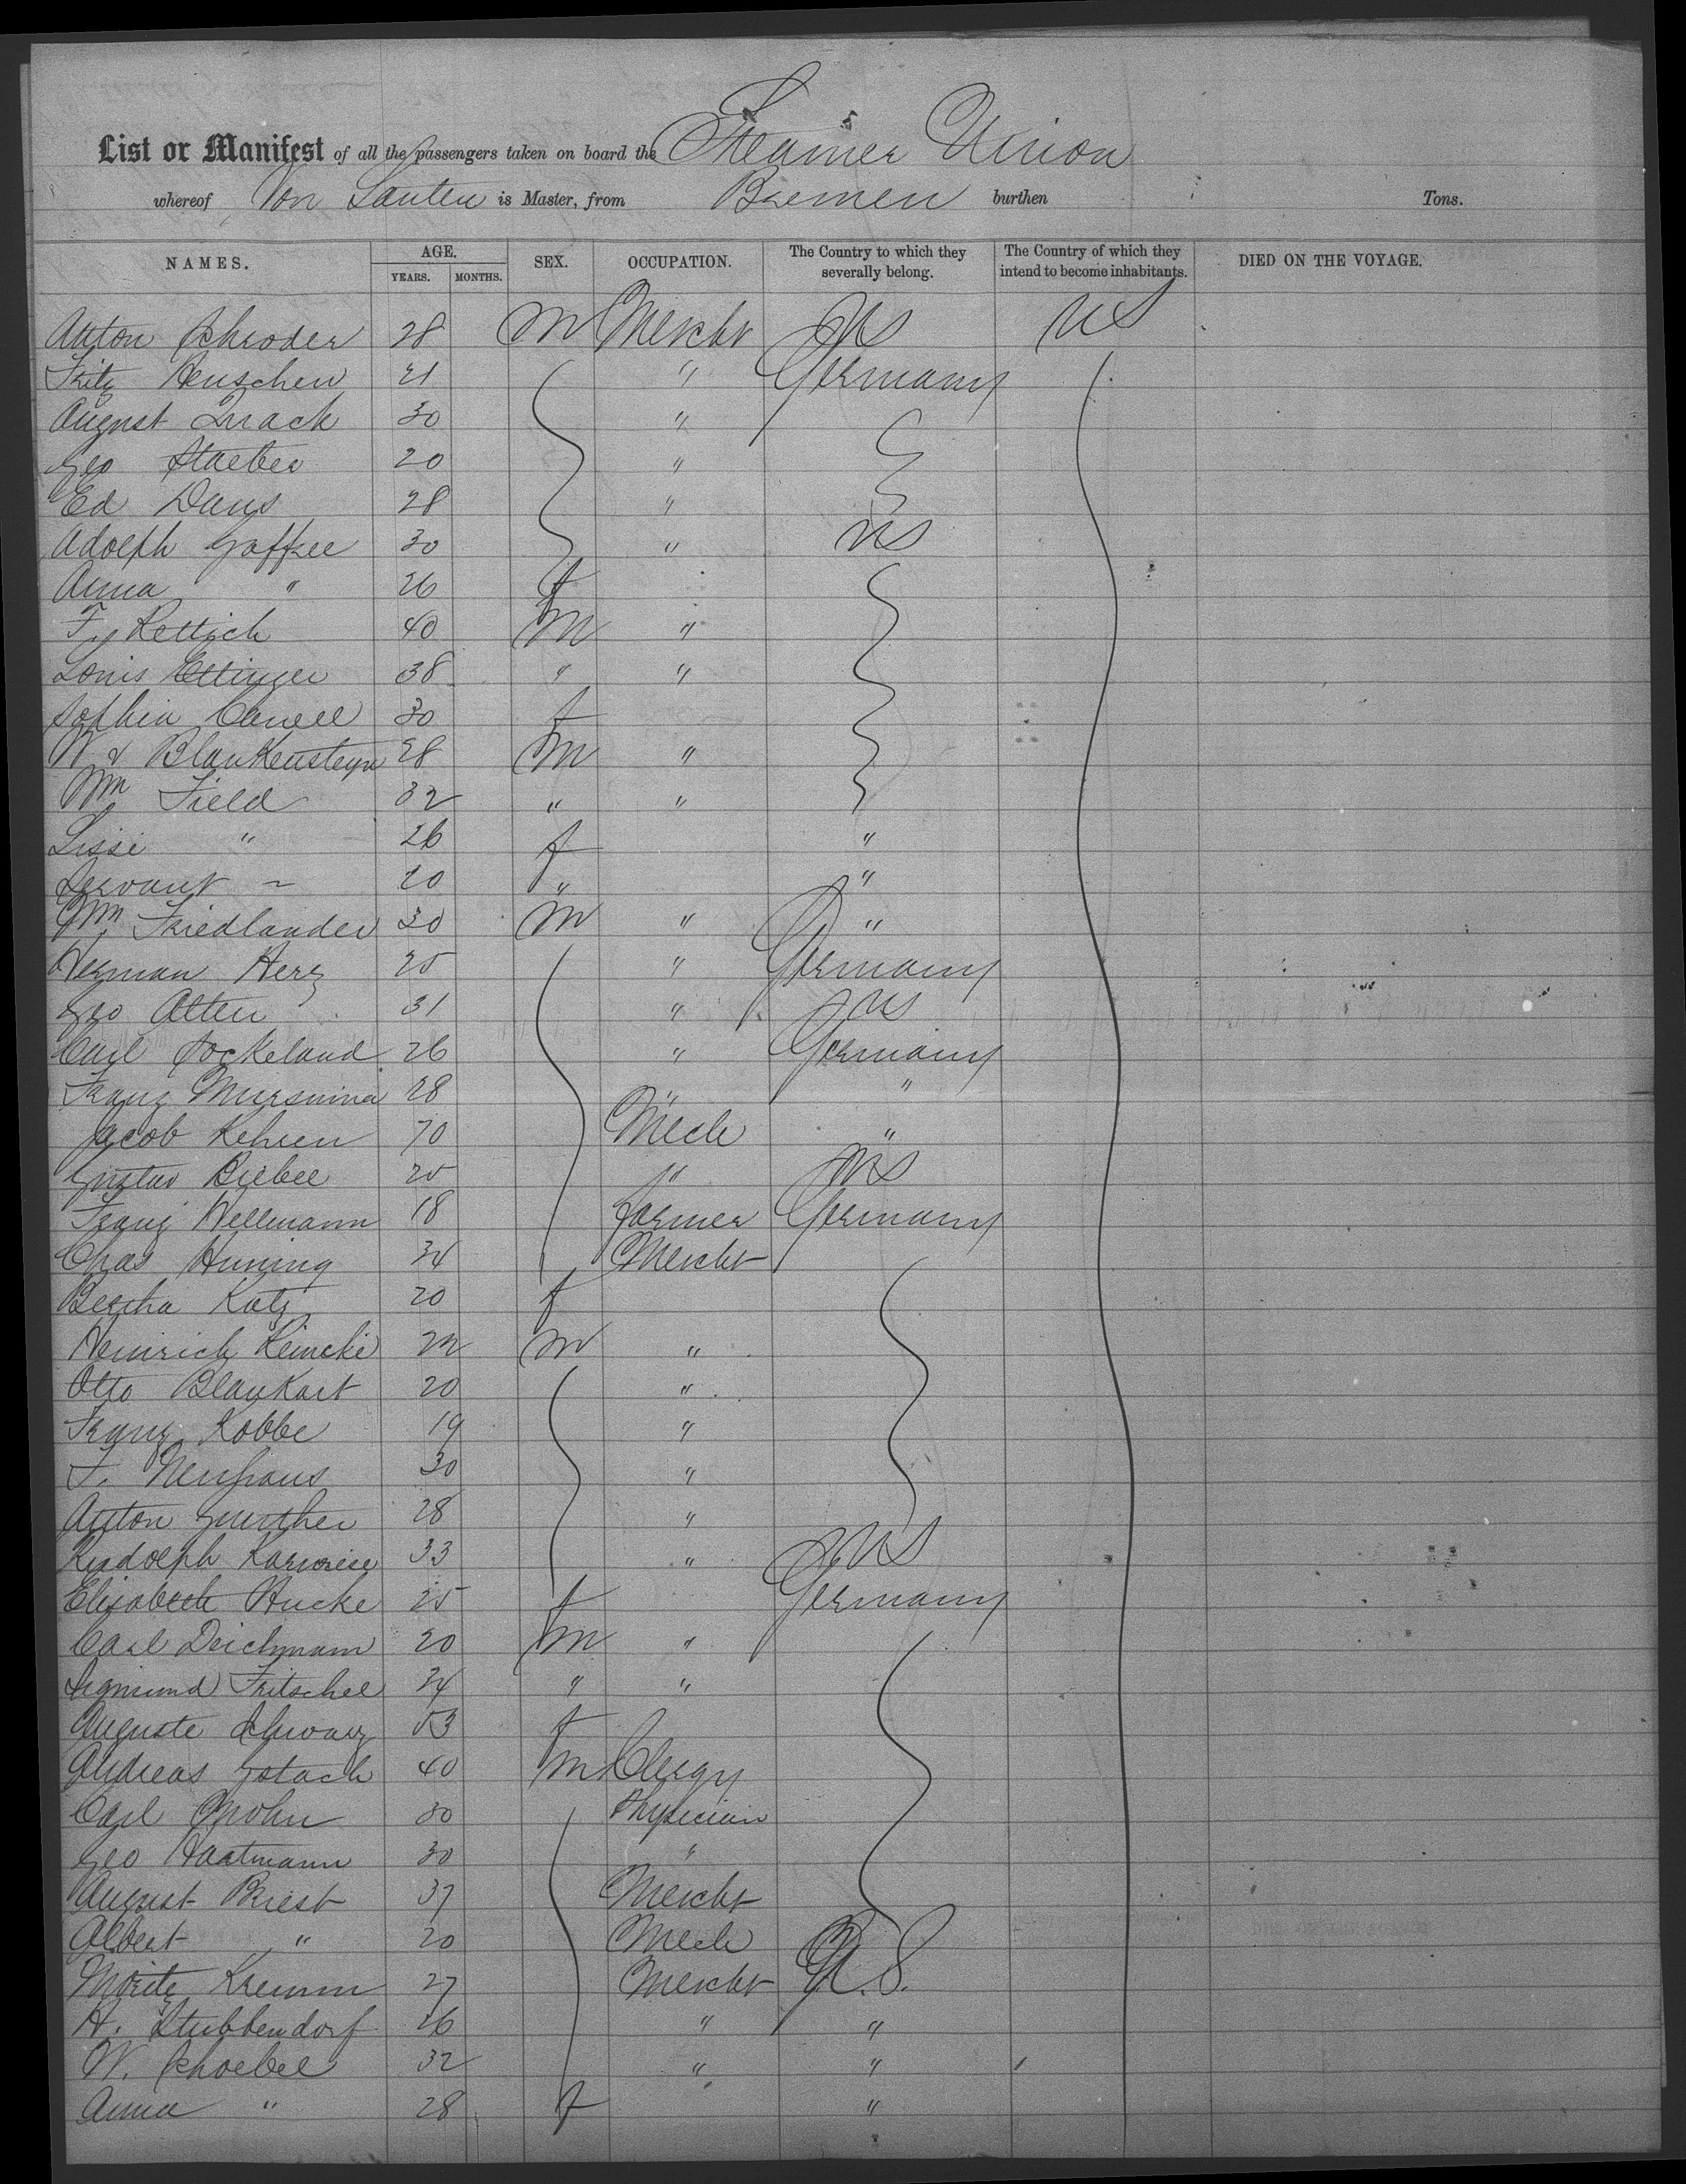 List or Manifest of all the passengers taken on board the Steamer Union
whereof Von Santen is Master, from Bremen burthen Tons.
NAMES. AGE. YEARS. MONTHS. SEX. OCCUPATION. The Country to which they severally belong. The Country of which they intend to become inhabitants. DIED ON THE VOYAGE.
Anton Schroder 28 m Mercht US US
Fritz Henschen 21 " Germany
August Quack 30 "
Geo Staeber 20 "
Ed Daus 28 "
Adolph Gaffree 30 " US
Anna " 26 f
F. Rettich 40 m "
Louis Ettinger 38 " "
Sophia 30 f
W v Blankensteyn 28 m "
Wm Field 32 " "
Lissi " 26 f "
Servant 20 " "
Wm Friedlander 30 m " "
Herman Herz 25 " Germany
Geo Alten 31 " US
Carl Sockeland 26 " Germany
Franz Mursinna 28 " "
Jacob Kehren 70 Mech "
Gustav Biebel 25 " US
Franz Hellmann 18 Farmer Germany
Chas Huning 34 Mercht
Bertha Katz 20 f
Heinrich Reincke 22 m "
Otto Blankart 20 "
Franz Kobbe 19 "
F. Neuhaus 30 "
Anton Gunther 28 "
Rudolph 33 " US
Elisabeth Hucke 25 f Germany
Carl Deichmann 20 m "
Sigmund Fritschel 34 " "
Auguste Schwarz 53 f
Andreas Estach 40 m Clergy
Carl Spohn 30 Physician
Geo Hartmann 30 "
August Priest 37 Mercht
Albert " 20 Mech
Moritz Kremm 27 Mercht U.S.
H. Stubbendorf 26 " "
W. Schoebel 32 " "
Anna " 28 f "